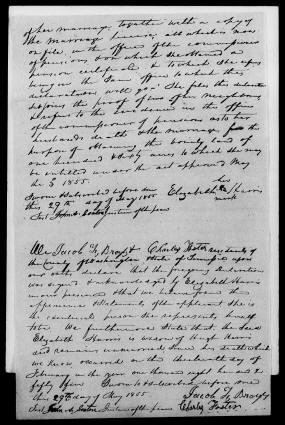 of her marriage, together with a copy
of the marriage license, all which is now
on file, in the office of the commissioner
of pensions, from which she obtained a
pension certificate to which she refers
being in the Same office to which this
declaration will go. She files this declaration
& subjoins the proof of two of her neighbours
& refers to the evidence in the office
of the commissioner of pensions as to her
husbands death & the marriage, for the
purpose of obtaining the bounty land of
one hundred & sixty acres to which she may
be entitled under the act approved May
the 3 1855.
Sworn to & subscribed before me Elizabeth her Harris
this 29th day of May 1855 mark
Test John A. justice of the peace
We Jacob F. Broyls & Charley residents of
the county of Washington State of Tennessee upon
our oaths declare that the foregoing Declaration
was signed & acknowledged by Elizabeth Harris
in our presence & that we believe from the
appearance & Statements of the applicant She is
the identical person She represents herself
to be. We furthermore State that the Said
Elizabeth Harris is widow of Hugh Harris
and remains unmarried Since his death which
we know occurred on the day of
February in the year one thousand eight hundred &
fifty Sworn to & subscribed before me
this 29th day of May 1855 Jacob F. Broyls
Test John A. Justice of the peace Charley